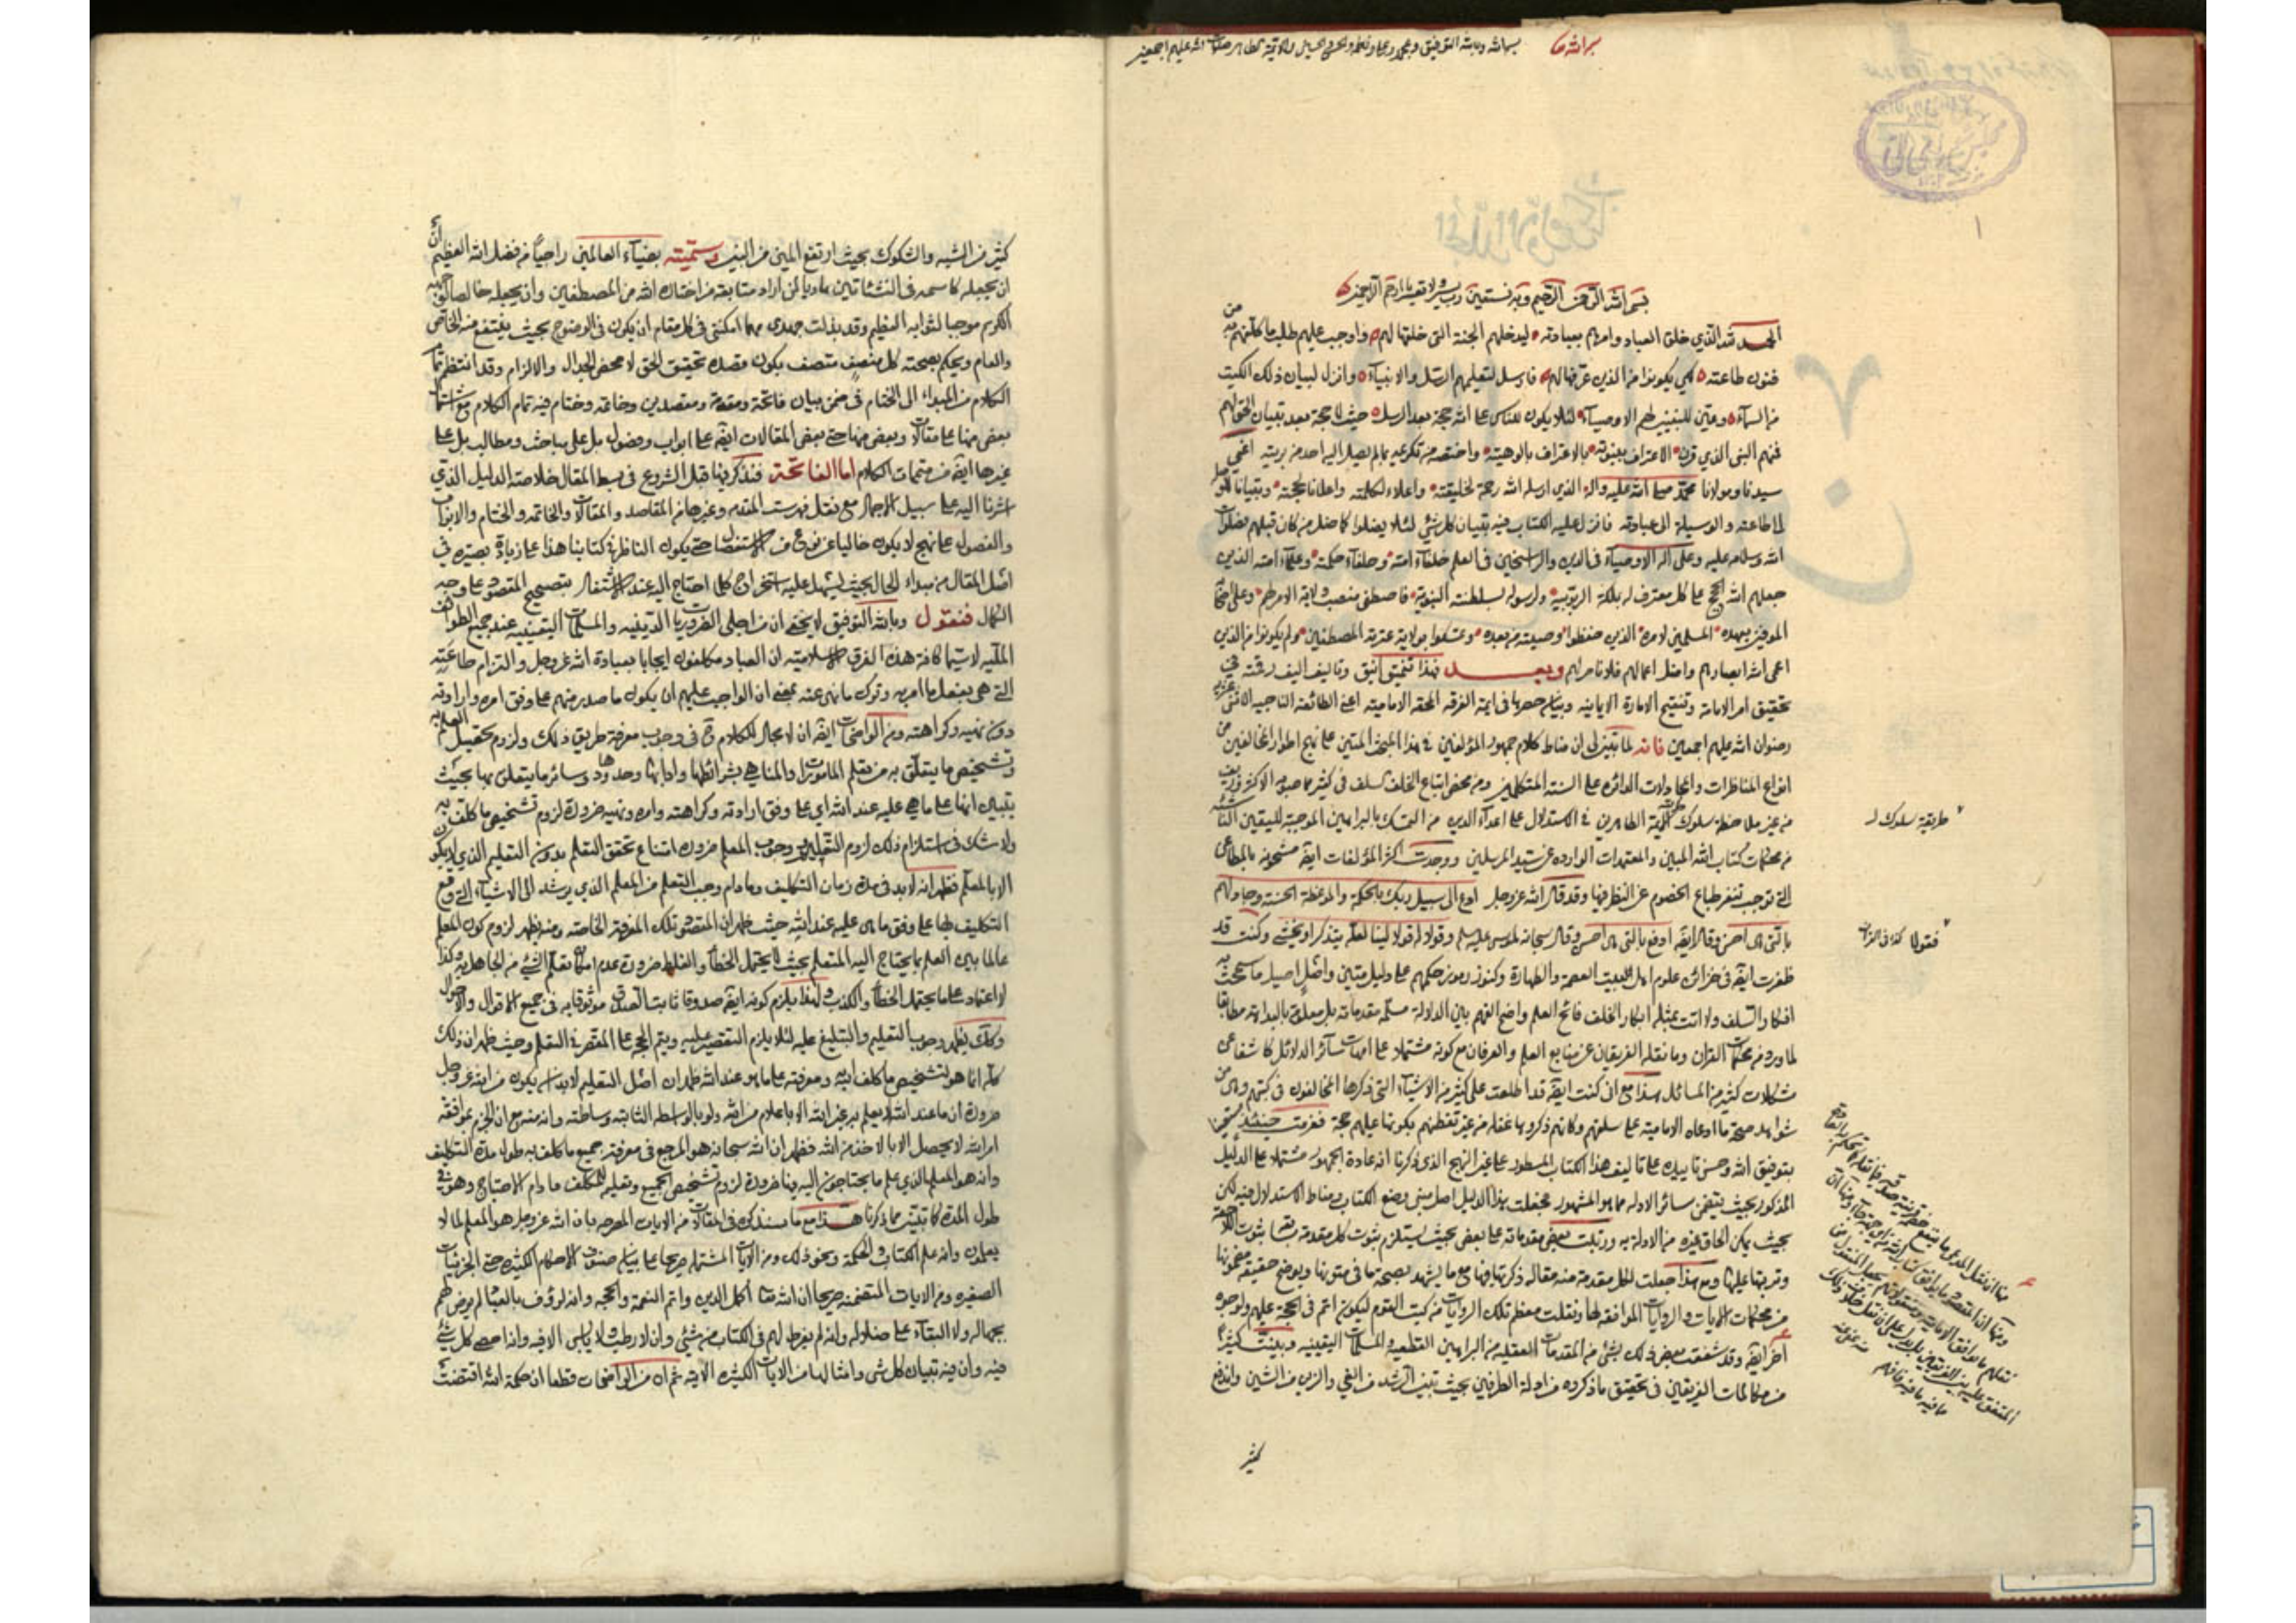 بسم الله وبالله التوفيق
بسم الله الرحمن الرحيم وبه نستعين رب يسر ولا تعسر يا ارحم الراحمين
الحمد لله الذي خلق العباد وامرهم بعبادته ليدخلهم الجنة التي خلقها لهم واوجب عليهم طلب ما كلفهم به من
فنون طاعته كي يكونوا من الذين عرفها لهم فارسل لتعليمهم الرسل والانبياء وانزل لبيان ذلك الكتب
من السماء وعين للتبيين لهم الاوصياء لئلا يكون للناس على الله حجة بعد الرسل حيث لا حجة بعد تبيان الحق لهم
فمنهم النبي الذي قرن الاعتراف بنبوته بالاعتراف بالوهيته واختصه من تكريمه بما لم يصل اليه احد من بريته اعني
سيدنا ومولانا محمد صلى الله عليه واله الذي ارسله الله رحمة لخليقته واعلاء لكلمته واعلانا لحجته وتبيانا
لطاعته والوسيلة الى عبادته فانزل عليه الكتاب فيه تبيان كل شيء لئلا يضلوا كما ضل من كان قبلهم فصلوات
الله وسلامه عليه وعلى اله الاوصياء في الدين والراسخين في العلم خلفاء امته وحلفاء حكمته وعلماء امته الذين
جعلهم الله الحجج على كل معترف له بملكة الربوبية ولرسوله بسلطنة النبوة فاصطفى منصب ولاية الامر لهم وعلى
الموفين بعهده المسلمين لامره الذين حفظوا وصيته من بعده وتمسكوا بولاية عترته المصطفين ولم يكونوا من الذين
اعمى الله ابصارهم واضل اعمالهم فلا ناصر لهم وبعد فهذا تنميق انيق وتاليف اليف رقمته في
تحقيق امر الامامة وتنقيح الامارة الايمانية وبيان حصرها في ائمة الفرقة المحقة الامامية اعني الطائفة الناجية الاثنى عشرية
رضوان الله عليهم اجمعين فانه لما تبين لي ان مناط كلام جمهور المؤلفين في هذا المبحث المتين على نهج اطوار المخالفين من
انواع المناظرات والمجادلات الدائرة على السنة المتكلمين ومن محض اتباع الخلف للسلف في كثير مما صوبه الاكثرون
من غير ملاحظة سلوك الائمة الطاهرين في الاستدلال على اعداء الدين من التمسك بالبراهين الموجبة لليقين
من محكمات كتاب الله المبين والمعتمدات الواردة عن سيد المرسلين ووجدت اكثر المؤلفات ايضا مشحونة بالمطاعن
التي توجب تنفر طباع الخصوم عن النظر فيها وقد قال الله عز وجل ادع الى سبيل ربك بالحكمة والموعظة الحسنة وجادلهم
بالتي هي احسن وقال ايضا ادفع بالتي هي احسن وقال سبحانه لموسى عليه السلم وقولا له قولا لينا لعله يتذكر او يخشى وكنت قد
ظفرت ايضا في خزائن علوم اهل بيت العصمة والطهارة وكنوز رموز حكمهم على دليل متين واصل اصيل ما سمحت به
افكار السلف ولا اتت بمثله ابكار الخلف فاتح العلم واضح الفهم بين الدلالة مسلمة مقدماته بل معلومة بالبداهة مطابقا
لما ورد في محكمات القران وما نقله الفريقان عن منابع العلم والعرفان مع كونه مشتملا على امهات سائر الدلائل كاشفا عن
مشكلات كثير من المسائل هذا مع اني كنت ايضا قد اطلعت على كثير من الاشياء التي ذكرها المخالفون في كتبهم وهي من
شواهد صحة ما ادعاه الامامية على سلمهم وكانهم ذكروها غفلة من غير تفطنهم بكونها عليهم حجة فعزمت حينئذ
بتوفيق الله وحسن تاييده على تاليف هذا الكتاب المسطور على غير النهج الذي ذكرنا انه عادة الجمهور مشتملا على الدليل
المذكور بحيث يتضمن سائر الادلة مما هو المشهور فجعلت هذا الدليل اصل مبنى وضع الكتاب ومناط الاستدلال فيه لكن
بحيث يمكن الحاق غيره من الادلة به ورتبت بعض مقدماته على بعض بحيث يستلزم ثبوت كل مقدمة سابقها ثبوت اللاحقة
وتربتها عليها ومع هذا جعلت لكل مقدمة منه مقالة ذكرتها فيها مع ما يشهد بصحة ما في متونها ويوضح حقيقة مضمونها
من محكمات الايات والروايات الموافقة لها ونقلت معظم تلك الروايات من كتب القوم ليكون اتم في الحجة عليهم ولوجوه
اخر ايضا وقد شفعت بعض ذلك بشيء من المقدمات العقلية من البراهين القطعية والمسلمات اليقينية وبينت كثيرا
من مكالمات الفريقين في تحقيق ما ذكروه من ادلة الطرفين بحيث تبين الرشد من الغي والزين من الشين واندفع
كثير
طريقة سلوك
فقولا كذا في القران
كثير من الشبه والشكوك بحيث ارتفع المين من البين وسميته بضياء العالمين راجيا من فضل الله العظيم
ان يجعله كاسمه في النشأتين هاديا لمن اراد متابعة من اختاره الله من المصطفين وان يجعله خالصا لوجهه
الكريم موجبا لثوابه العظيم وقد بذلت جهدي مهما امكنني في كل مقام ان يكون في الوضوح بحيث ينتفع منه الخاص
والعام ويحكم بصحته كل منصف متصف بكون قصده تحقيق الحق لا محض الجدال والالزام وقد انتظم تمام
الكلام من المبداء الى الختام في ضمن بيان فاتحة ومقدمة ومقصدين وخاتمة وختام فيه تمام الكلام مع اشتمال
بعض منها على مقالات وبعض منها حتى بعض المقالات ايضا على ابواب وفصول بل على مباحث ومطالب بل على
غيرها ايضا من متممات الكلام اما الفاتحة فنذكر فيها قبل الشروع في بسط المقال خلاصة الدليل الذي
اشرنا اليه على سبيل الاجمال مع نقل فهرست المقدمة وغيرها من المقاصد والمقالات والخاتمة والختام والابواب
والفصول على نهج لا يكون خاليا عن نوع من الاستفصال حتى يكون الناظر في كتابنا هذا على زيادة بصيرة في
اصل المقال من مبداء الحال بحيث يسهل عليه استخراج كلما احتاج اليه عند الاشتغال بتصحيح المقصود على وجه
الكمال فنقول وبالله التوفيق لا يخفى ان من اجلى الضروريات الدينية والمسلمات اليقينية عند جميع الطوائف
الملية لا سيما كافة هذه الفرق الاسلامية ان العباد مكلفون ايجابا بعبادة الله عز وجل والتزام طاعته
التي هي بفعل ما امر به وترك ما نهى عنه بمعنى ان الواجب عليهم ان يكون ما صدر منهم على وفق امره وارادته
دون نهيه وكراهته ومن الواضحات ايضا ان لا مجال للكلام في وجوب معرفة طريق ذلك ولزوم تحصيل العلم به
وتشخيص ما يتعلق به من تعلم المامورات والمناهي بشرائطها وادابها وحدودها وسائر ما يتعلق بها بحيث
يتبين انها على ما هي عليه عند الله اي على وفق ارادته وكراهته وامره ونهيه ضرورة لزوم تشخيص ما كلف به
ولا شك في استلزام ذلك لزوم التعليم ووجوب المعلم ضرورة امتناع تحقق التعلم بدون التعليم الذي لا يكون
الا بالمعلم فظهر انه لا بد في مدة زمان التكليف وما دام وجب التعلم من المعلم الذي يرشد الى الاشياء التي وقع
التكليف بها على وفق ما هي عليه عند الله حيث ظهر ان المقصود تلك المعرفة الخاصة ومنه يظهر لزوم كون المعلم
عالما بين العلم بما يحتاج اليه المتعلم بحيث لا يحتمل الخطأ والغلط ضرورة عدم امكان تعلم الشيء من الجاهل به وكذا
لا اعتماد على ما يحتمل الخطأ والكذب ولهذا يلزم كونه ايضا صدوقا ثابت الصدق موثوقا به في جميع الاقوال والاحوال
وكذلك يظهر وجوب التعليم والتبليغ عليه لئلا يلزم التقصير عليه ويتم الحجة على المقصر في التعلم وحيث ظهر ان ذلك
كله انما هو لتشخيص ما كلف به ومعرفته على ما هو عند الله ظهر ان اصل التعليم لا بد ان يكون من الله عز وجل
ضرورة ان ما عند الله لا يعلم به غير الله الا باعلام من الله ولو بالواسطة الثابتة وساطته وانه منه مع ان الجزم بموافقة
امر الله لا يحصل الا بالاخذ من الله فظهر ان الله سبحانه هو المرجع في معرفة جميع ما كلف به طول مدة التكليف
وانه هو المعلم الذي علم ما يحتاجون اليه فيها ضرورة لزوم تشخيص الجميع وتعليمه للمكلف ما دام الاحتياج وهو في
طول المدة كما تبين مما ذكرنا هذا مع ما سنذكره في المقالات من الايات المصرحة بان الله عز وجل هو المعلم لما لا
يعلمون وانه علم الكتاب والحكمة ونحو ذلك ومن الايات المشتملة صريحا على بيان صنوف الاحكام الكثيرة حتى الجزئيات
الصغيرة ومن الايات المتضمنة صريحا ان الله تعالى اكمل الدين واتم النعمة والحجة وانه لرؤف بالعباد لم يرض لهم
بجهالة ولا البقاء على ضلالة وانه لم يفرط لهم في الكتاب من شيء وان لا رطب ولا يابس الا فيه وانه احصى كل شيء
فيه وان فيه تبيان كل شيء وامثالها من الايات الكثيرة الاتية ثم ان من الواضحات قطعا ان حكمة الله اقتضت